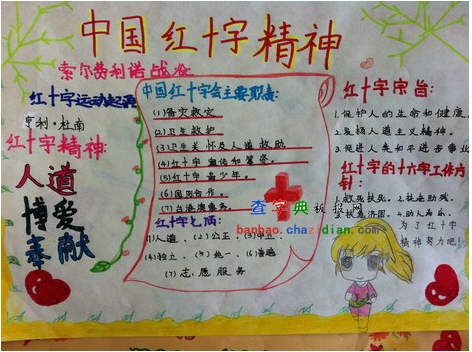 中国红十字精神
索尔费利诺战役
红十字运动起源
亨利·杜南
红十字精神:
人道
博爱
奉献
中国红十字会主要职责:
(1)备灾救灾
(2)卫生救护
(3)卫生关怀及人道救助
(4)红十字宣传和筹资。
(5)红十字青少年。
(6)国际合作。
(7)台港澳事务。
红十字七项:
(1)人道、(2)公正、(3)中立、
(4)独立、(5)统一、(6)普遍
(7)志愿服务
红十字宗旨:
1.保护人的生命和健康
2.发扬人道主义精神。
3.促进人类和平进步事业
红十字的十六字工作方
针:
1.救死扶伤、2.扶危助残、
敬老济困。4.助人为乐。
为了红十字
精神努力吧!
查字典板报网
banbao.chazidian.com